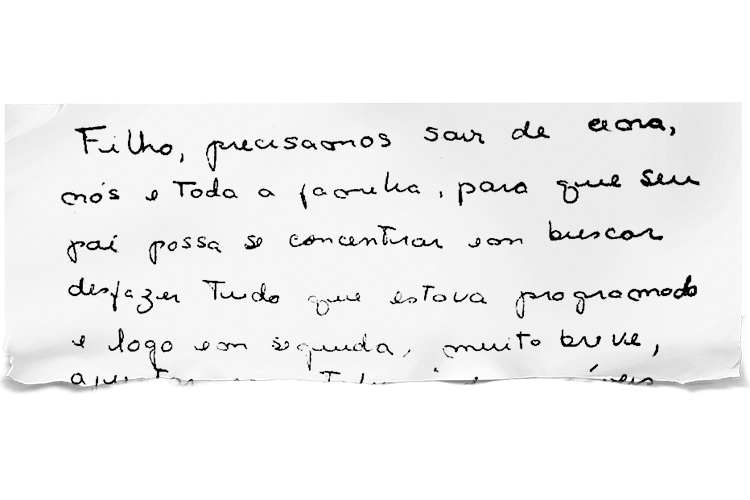 Filho, precisamos sair de cena,
nós e Toda a família, para que seu
pai possa se concentrar em buscar
desfazer Tudo que estava programado
e logo em seguida, muito breve,